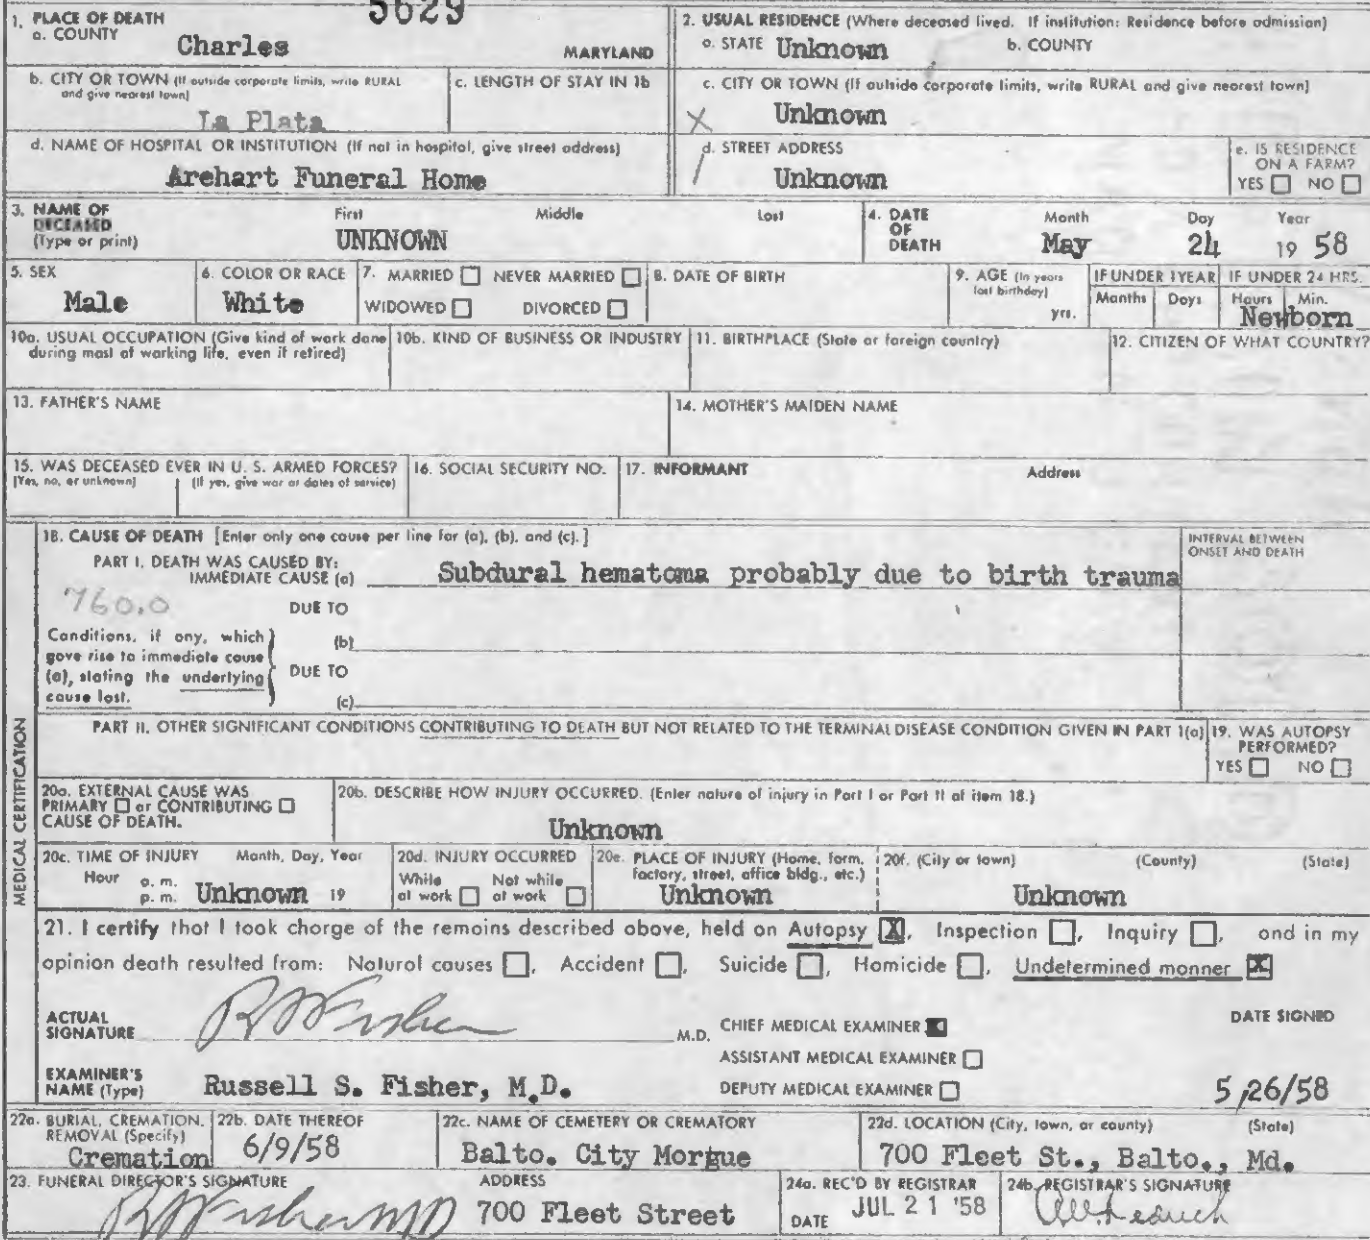 5629
1. PLACE OF DEATH
a. COUNTY
Charles
MARYLAND
2. USUAL RESIDENCE (Where deceased lived. If institution: Residence before admission)
a. STATE Unknown b. COUNTY
b. CITY OR TOWN (If outside corporate limits, write RURAL and give nearest town)
La Plata
c. LENGTH OF STAY IN 1b
c. CITY OR TOWN (If outside corporate limits, write RURAL and give nearest town)
Unknown
d. NAME OF HOSPITAL OR INSTITUTION (If not in hospital, give street address)
Arehart Funeral Home
d. STREET ADDRESS
Unknown
e. IS RESIDENCE
ON A FARM?
YES NO
3. NAME OF
DECEASED
(Type or print)
First Middle Last
UNKNOWN
4. DATE
OF
DEATH
Month Day Year
May 24 19 58
5. SEX
Male
6. COLOR OR RACE
White
7. MARRIED NEVER MARRIED
WIDOWED DIVORCED
8. DATE OF BIRTH
9. AGE (In years
last birthday)
yrs.
IF UNDER 1 YEAR
Months Days
IF UNDER 24 HRS.
Hours Min.
Newborn
10a. USUAL OCCUPATION (Give kind of work done
during most of working life, even if retired)
10b. KIND OF BUSINESS OR INDUSTRY
11. BIRTHPLACE (State or foreign country)
12. CITIZEN OF WHAT COUNTRY?
13. FATHER'S NAME
14. MOTHER'S MAIDEN NAME
15. WAS DECEASED EVER IN U. S. ARMED FORCES?
(Yes, no, or unknown) (If yes, give war or dates of service)
16. SOCIAL SECURITY NO.
17. INFORMANT Address
MEDICAL CERTIFICATION
18. CAUSE OF DEATH [Enter only one cause per line for (a), (b), and (c).]
INTERVAL BETWEEN
ONSET AND DEATH
PART I. DEATH WAS CAUSED BY:
IMMEDIATE CAUSE (a) Subdural hematoma probably due to birth trauma
760.0
DUE TO
Conditions, if any, which
gave rise to immediate cause
(a), stating the underlying
cause last.
(b)
DUE TO
(c)
PART II. OTHER SIGNIFICANT CONDITIONS CONTRIBUTING TO DEATH BUT NOT RELATED TO THE TERMINAL DISEASE CONDITION GIVEN IN PART 1(a)
19. WAS AUTOPSY
PERFORMED?
YES NO
20a. EXTERNAL CAUSE WAS
PRIMARY or CONTRIBUTING
CAUSE OF DEATH.
20b. DESCRIBE HOW INJURY OCCURRED. (Enter nature of injury in Part I or Part II of item 18.)
Unknown
20c. TIME OF INJURY Month, Day, Year
Hour a. m.
p. m. Unknown 19
20d. INJURY OCCURRED
While at work Not while at work
20e. PLACE OF INJURY (Home, farm,
factory, street, office bldg., etc.)
Unknown
20f. (City or town) (County) (State)
Unknown
21. I certify that I took charge of the remains described above, held on Autopsy X, Inspection , Inquiry , and in my
opinion death resulted from: Natural causes , Accident , Suicide , Homicide , Undetermined manner X
ACTUAL
SIGNATURE
R S Fisher
M.D.
CHIEF MEDICAL EXAMINER X
ASSISTANT MEDICAL EXAMINER
DEPUTY MEDICAL EXAMINER
DATE SIGNED
EXAMINER'S
NAME (Type) Russell S. Fisher, M.D.
5/26/58
22a. BURIAL, CREMATION,
REMOVAL (Specify)
Cremation
22b. DATE THEREOF
6/9/58
22c. NAME OF CEMETERY OR CREMATORY
Balto. City Morgue
22d. LOCATION (City, town, or county) (State)
700 Fleet St., Balto., Md.
23. FUNERAL DIRECTOR'S SIGNATURE
R S Fisher MD
ADDRESS
700 Fleet Street
24a. REC'D BY REGISTRAR
DATE JUL 21 '58
24b. REGISTRAR'S SIGNATURE